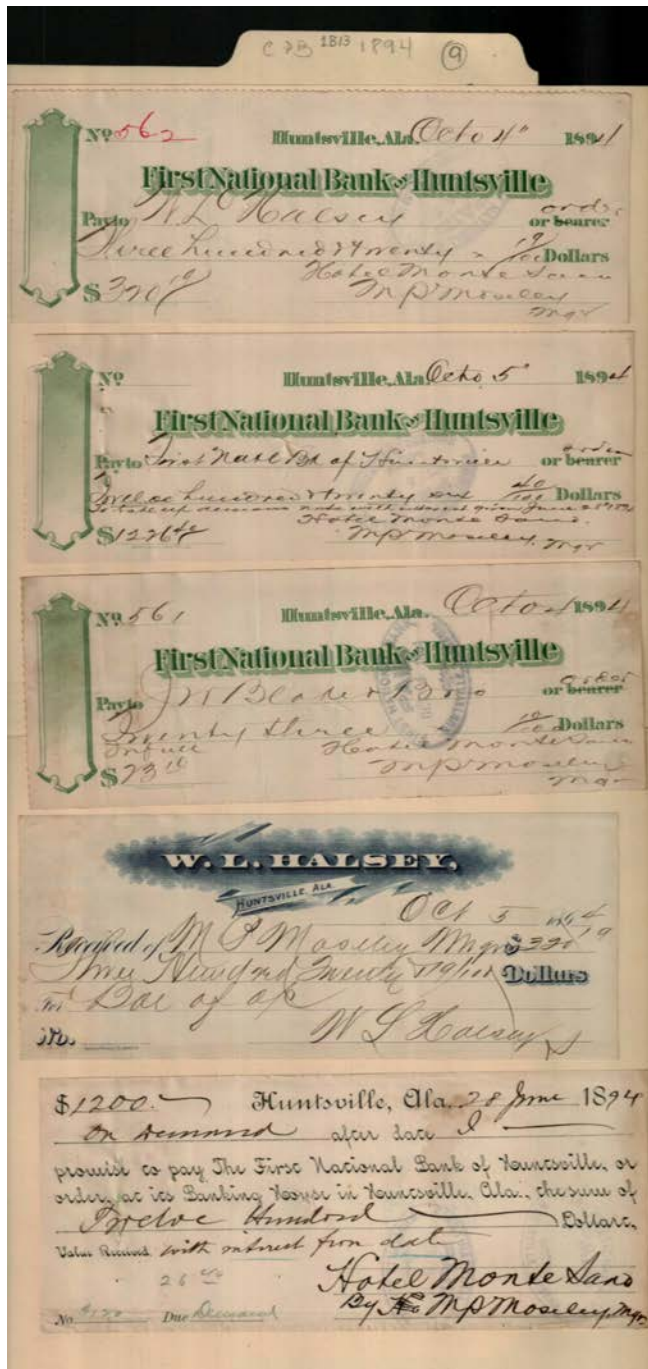 C & B 1813 1894 9
No 562 Huntsville, Ala. Octo 4" 1894
First National Bank of Huntsville
Pay to W L Halsey order or bearer
Three hundred & twenty 19/100 Dollars
Hotel Monte Sano
$320 19 M P Moseley
Mgr
No Huntsville, Ala. Octo 5" 1894
First National Bank of Huntsville
Pay to First Natl Bk of Huntsville order or bearer
Twelve hundred & twenty six 40/100 Dollars
To take up demand note with interest given June 28" 1894
Hotel Monte Sano
$1226 40 M P Moseley, Mgr
No 561 Huntsville, Ala. Octo 4 1894
First National Bank of Huntsville
Pay to order or bearer
Twenty three 10/100 Dollars
In full Hotel Monte Sano
$23 10 M P Moseley
Mgr
W. L. HALSEY,
HUNTSVILLE, ALA.
Oct 5 1894
Received of M P Moseley Mngr $320 19
Three Hundred Twenty & 19/100 Dollars
For Bal of a/c
No. W L Halsey
$1200.– Huntsville, Ala. 28 June 1894
On demand after date I
promise to pay The First National Bank of Huntsville, or
order, at its Banking House in Huntsville, Ala., the sum of
Twelve Hundred Dollars,
Value Received with interest from date
26 40 Hotel Monte Sano
By M P Moseley, Mgr.
No. Due Demand